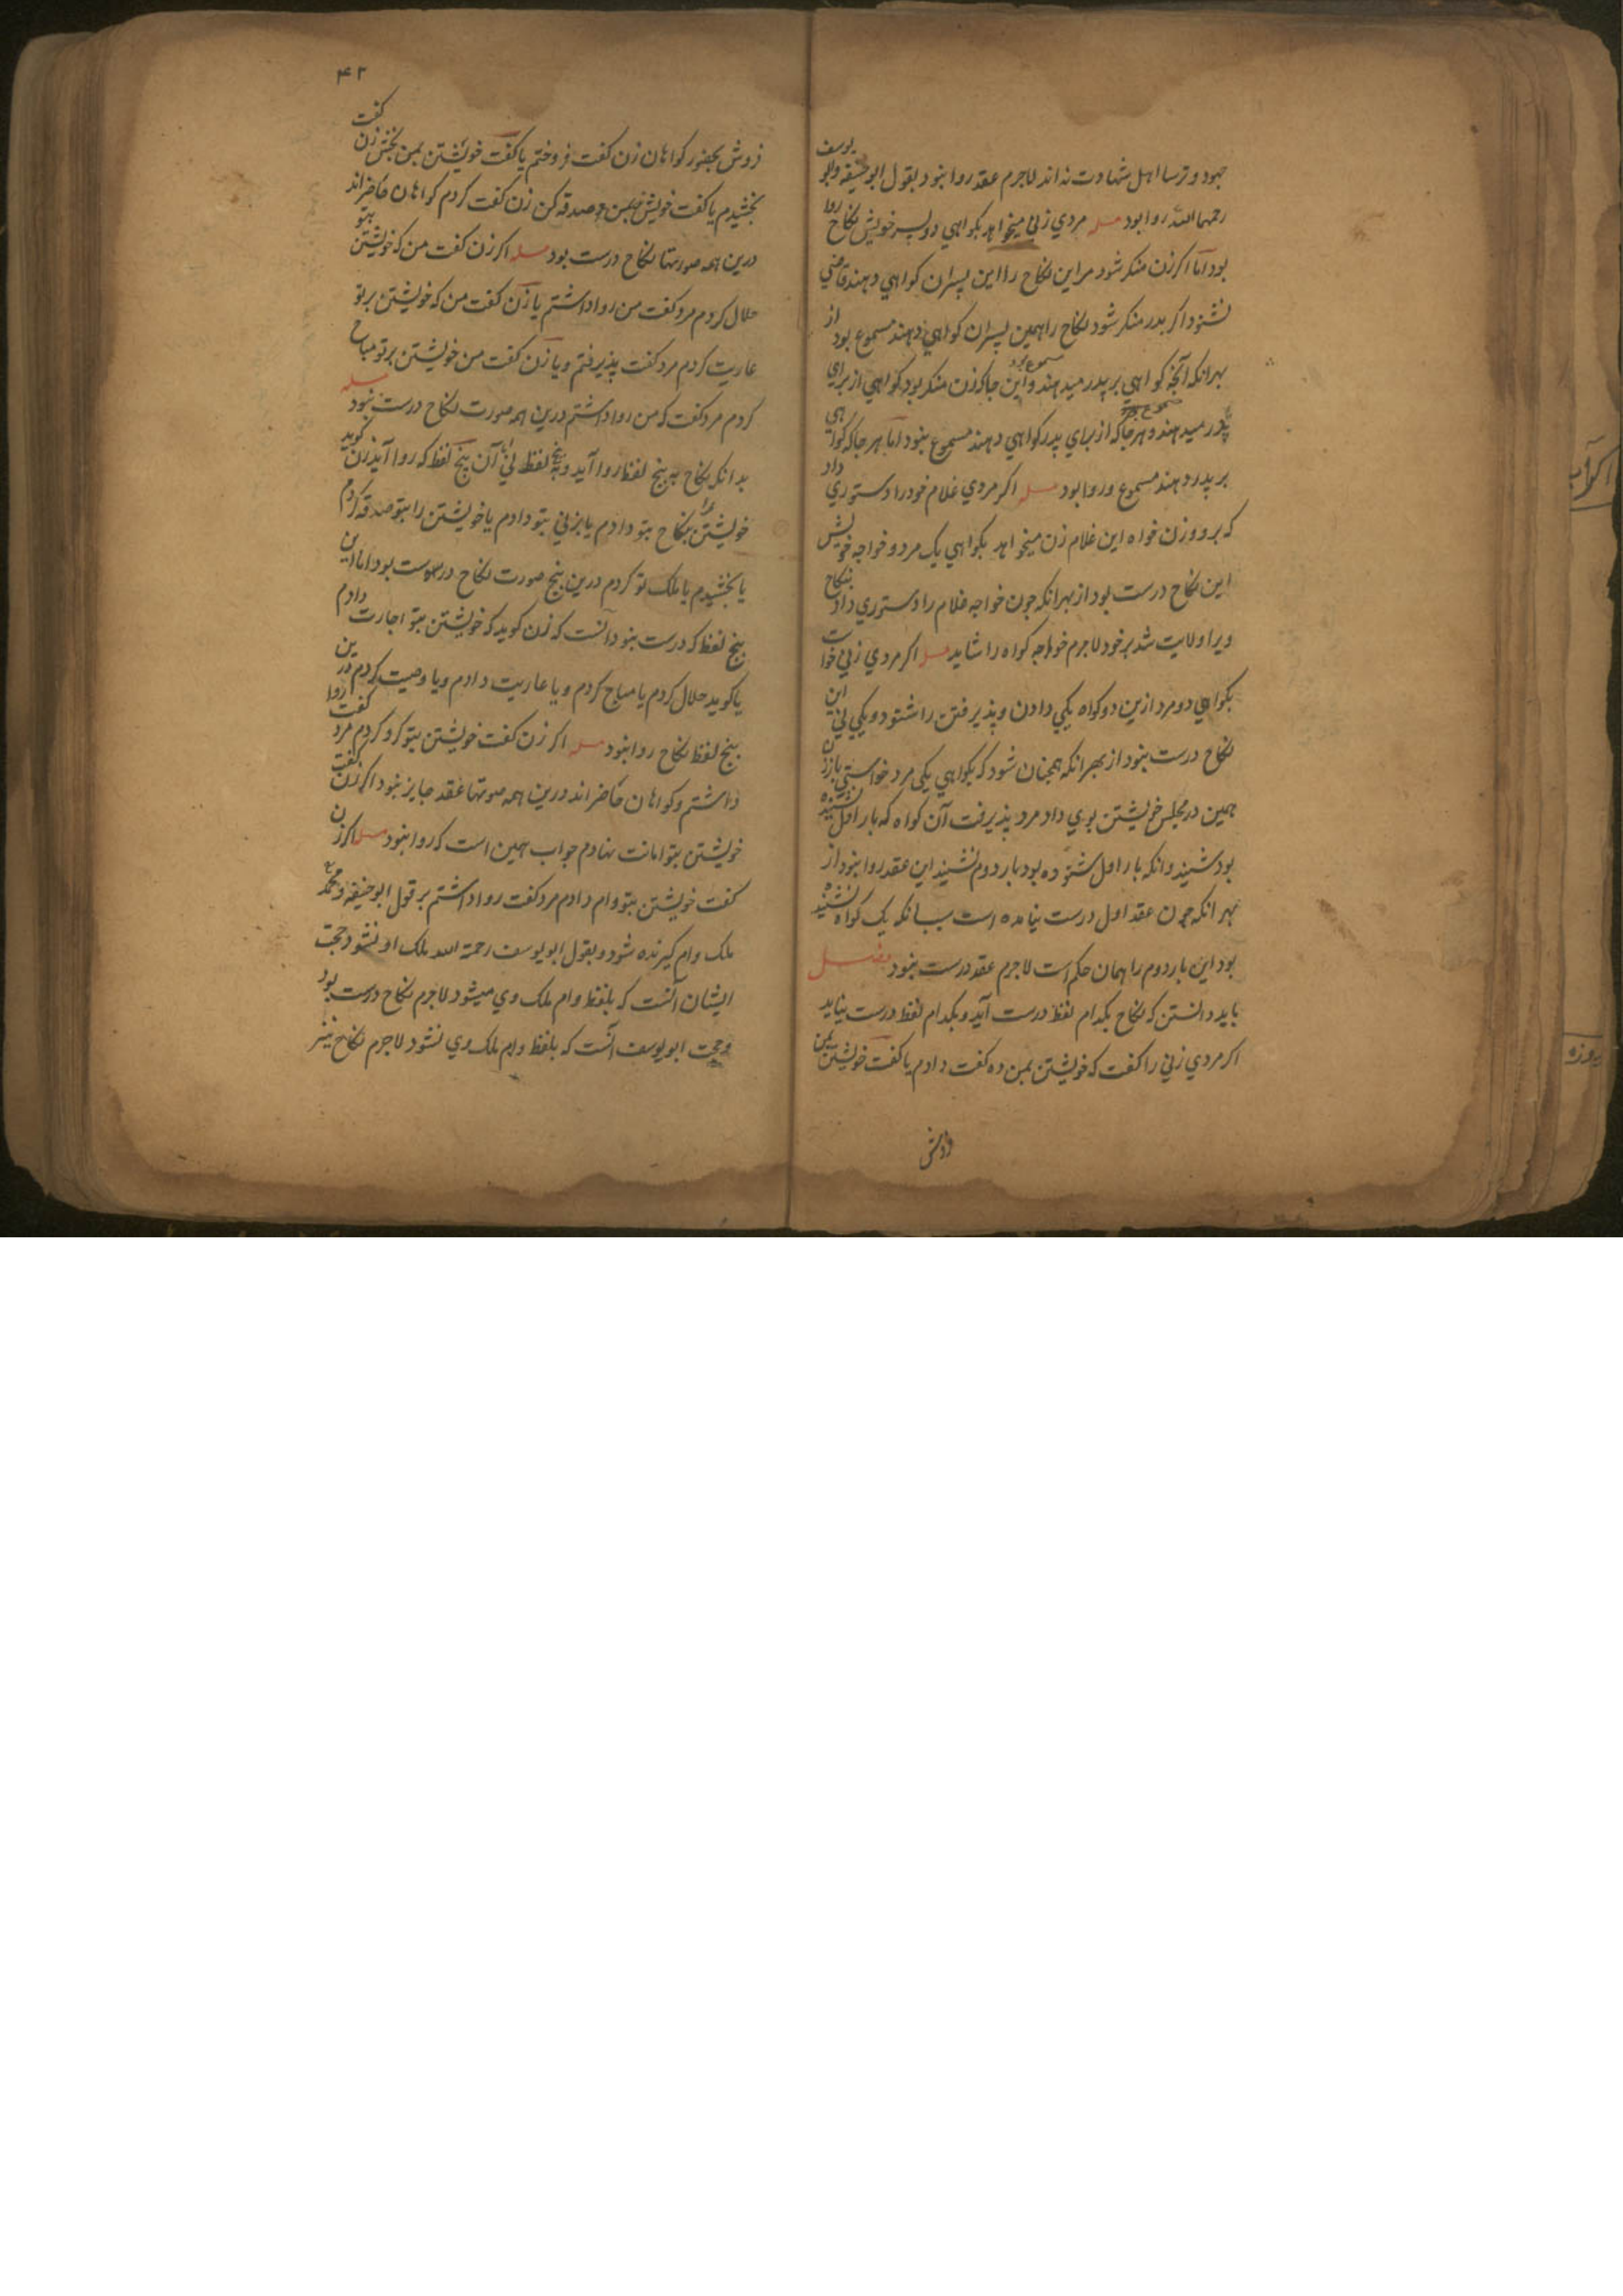 جهود و ترسا اهل شهادت نه اند لاجرم عقد روا نبود و بقول ابو حنیفه و ابو یوسف
رحمهما الله روا بود مسله مردي زني میخواهد بکواهي دو پسر خویش نکاح روا
بود اما اکر زن منکر شود مر این نکاح را این پسران کواهي دهند قاضي
نشنود اکر پدر منکر شود نکاح را همین پسران کواهي دهند مسموع بود از
بهر انکه آنجه کواهي بر پدر میدهند مسموع بود و این جا که زن منکر بود کواهي از براي
پدر میدهند و هر جا که از براي پدر کواهي دهند مسموع نبود اما هر جا که کواهي
بر پدر دهند مسموع و روا بود مسله اکر مردي غلام خود را دستوري داد
که برو و زن خواه این غلام زن میخواهد بکواهي یک مرد و خواجه خویش
این نکاح درست بود از بهر انکه جون خواجه غلام را دستوري داد بنکاح
ویرا ولایت شد بر خود لاجرم خواجه کواه را شاید مسله اکر مردي زني خواست
بکواهي دو مرد ازین دو کواه یکي دادن و پذیرفتن را شنود و یکي ني این
نکاح درست نبود از بهر انکه همجنان شود که بکواهي یکي مرد خواستي باز زن
همین در مجلس خویشتن بوي داد مرد پذیرفت آن کواه که بار اول نشنیده
بود شنید وانکه بار اول شنوده بود بار دوم نشنید این عقد روا نبود از
بهر انکه جون عقد اول درست نیامده است بسبب انکه یک کواه نشنیده
بود این بار دوم را همان حکم است لاجرم عقد درست نبود فصل
باید دانستن که نکاح بکدام لفظ درست آید و بکدام لفظ درست نیاید
اکر مردي زني را کفت که خویشتن بمن ده کفت دادم یا کفت خویشتن بمن
فروش بحضور کواهان زن کفت فروختم یا کفت خویشتن بمن بخش زن کفت
بخشیدم یا کفت خویشتن بمن صدقه کن زن کفت کردم کواهان حاضر اند
درین همه صورتها نکاح درست بود مسله اکر زن کفت من که خویشتن بتو
حلال کردم مرد کفت من روا داشتم یا زن کفت من که خویشتن بر تو
عاریت کردم مرد کفت پذیرفتم و یا زن کفت من خویشتن بر تو مباح
کردم مرد کفت که من روا داشتم درین همه صورت نکاح درست نبود مسله
بدانکه نکاح به پنج لفظ روا آید و به پنج لفظ ني آن پنج لفظ که روا آید زن کوید
خویشتن را بنکاح بتو دادم یا بزني بتو دادم یا خویشتن را بتو صدقه کردم
یا بخشیدم یا ملک تو کردم درین پنج صورت نکاح درست بود اما این
پنج لفظ که درست نبود آنست که زن کوید که خویشتن بتو اجارت دادم
یا کوید حلال کردم یا مباح کردم و یا عاریت دادم و یا وصیت کردم درین
پنج لفظ نکاح روا نبود مسله اکر زن کفت خویشتن بتو کرو کردم مرد کفت روا
داشتم و کواهان حاضر اند درین همه صورتها عقد جایز نبود اکر زن کفت
خویشتن بتو امانت نهادم جواب همین است که روا نبود مسله اکر زن
کفت خویشتن بتو وام دادم مرد کفت روا داشتم بر قول ابو حنیفه و محمد
ملک وام کیرنده شود و بقول ابو یوسف رحمة الله ملک او نشود حجت
ایشان آنست که بلفظ وام ملک وي میشود لاجرم نکاح درست بود
و حجت ابو یوسف آنست که بلفظ وام ملک وي نشود لاجرم نکاح نیز